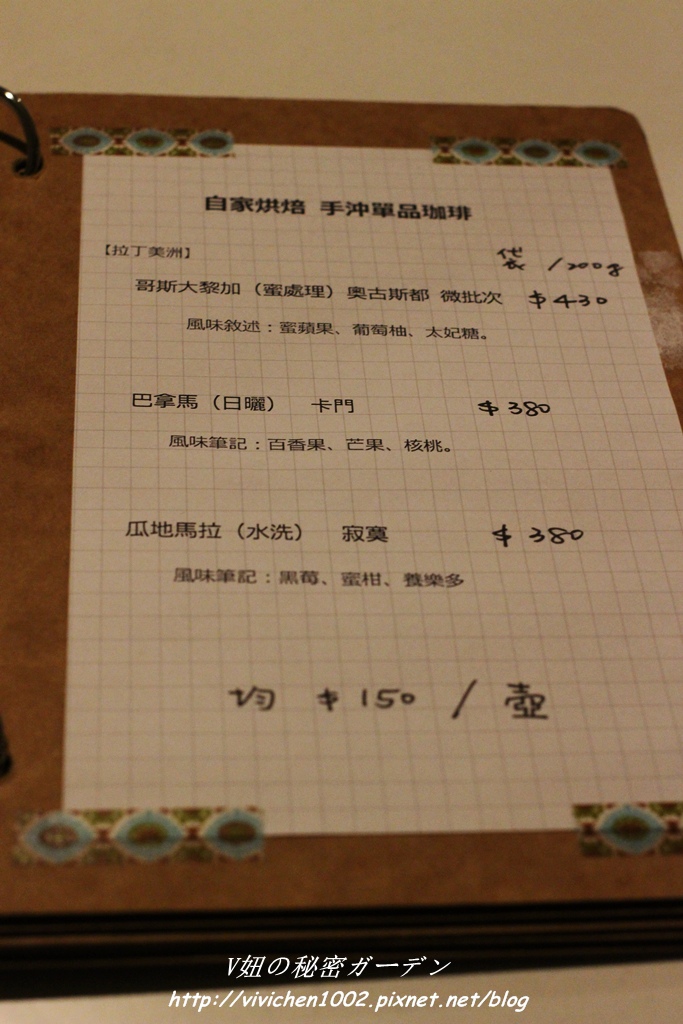 自家烘焙 手沖單品珈琲
【拉丁美洲】 袋/200g
哥斯大黎加（蜜處理）奧古斯都 微批次 $430
風味敘述：蜜蘋果、葡萄柚、太妃糖。
巴拿馬（日曬） 卡門 $380
風味筆記：百香果、芒果、核桃。
瓜地馬拉（水洗） 寂寞 $380
風味筆記：黑莓、蜜柑、養樂多
均 $150 / 壺
V妞の秘密ガーデン
http://vivichen1002.pixnet.net/blog